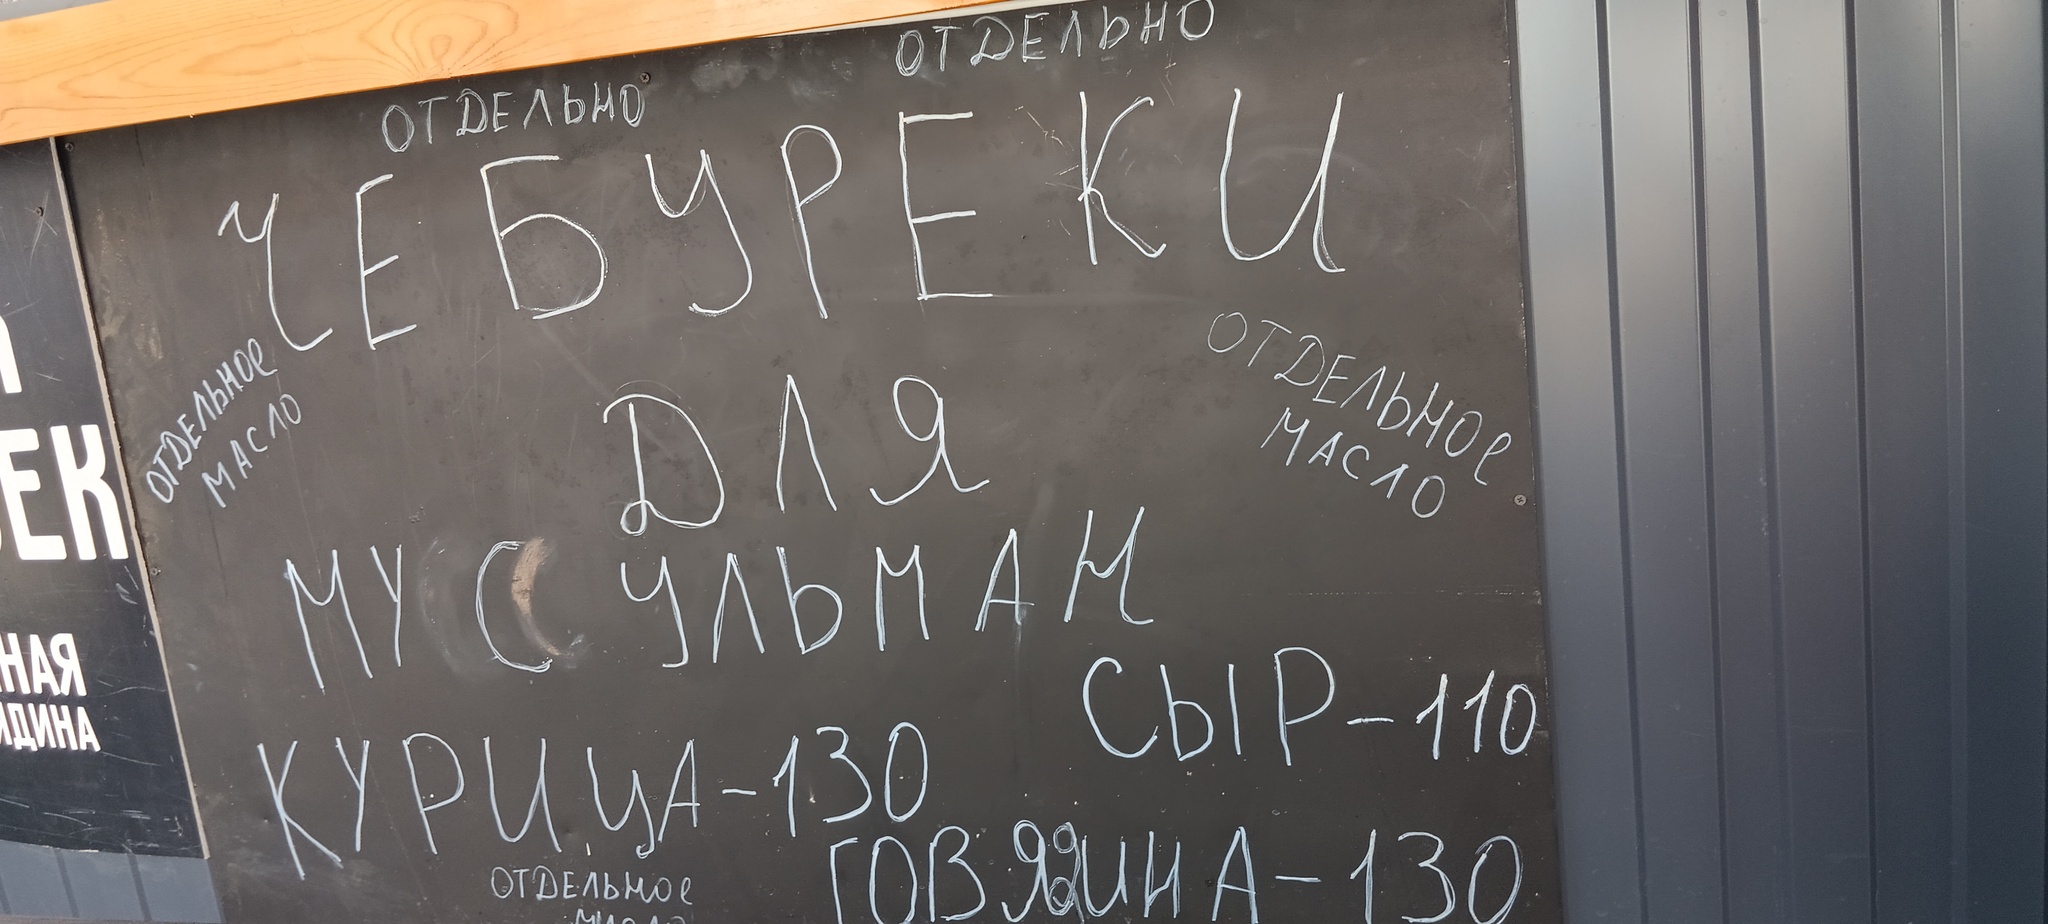 ОТДЕЛЬНО
ОТДЕЛЬНО
ЧЕБУРЕКИ
ОТДЕЛЬНОе
МАСЛО
ОТДЕЛЬНОе
МАСЛО
ДЛЯ
МУСУЛЬМАН
СЫР-110
КУРИЦА-130
ГОВЯДИНА-130
ОТДЕЛЬНОе
МАСЛО
ЕК
НАЯ
ИДИНА